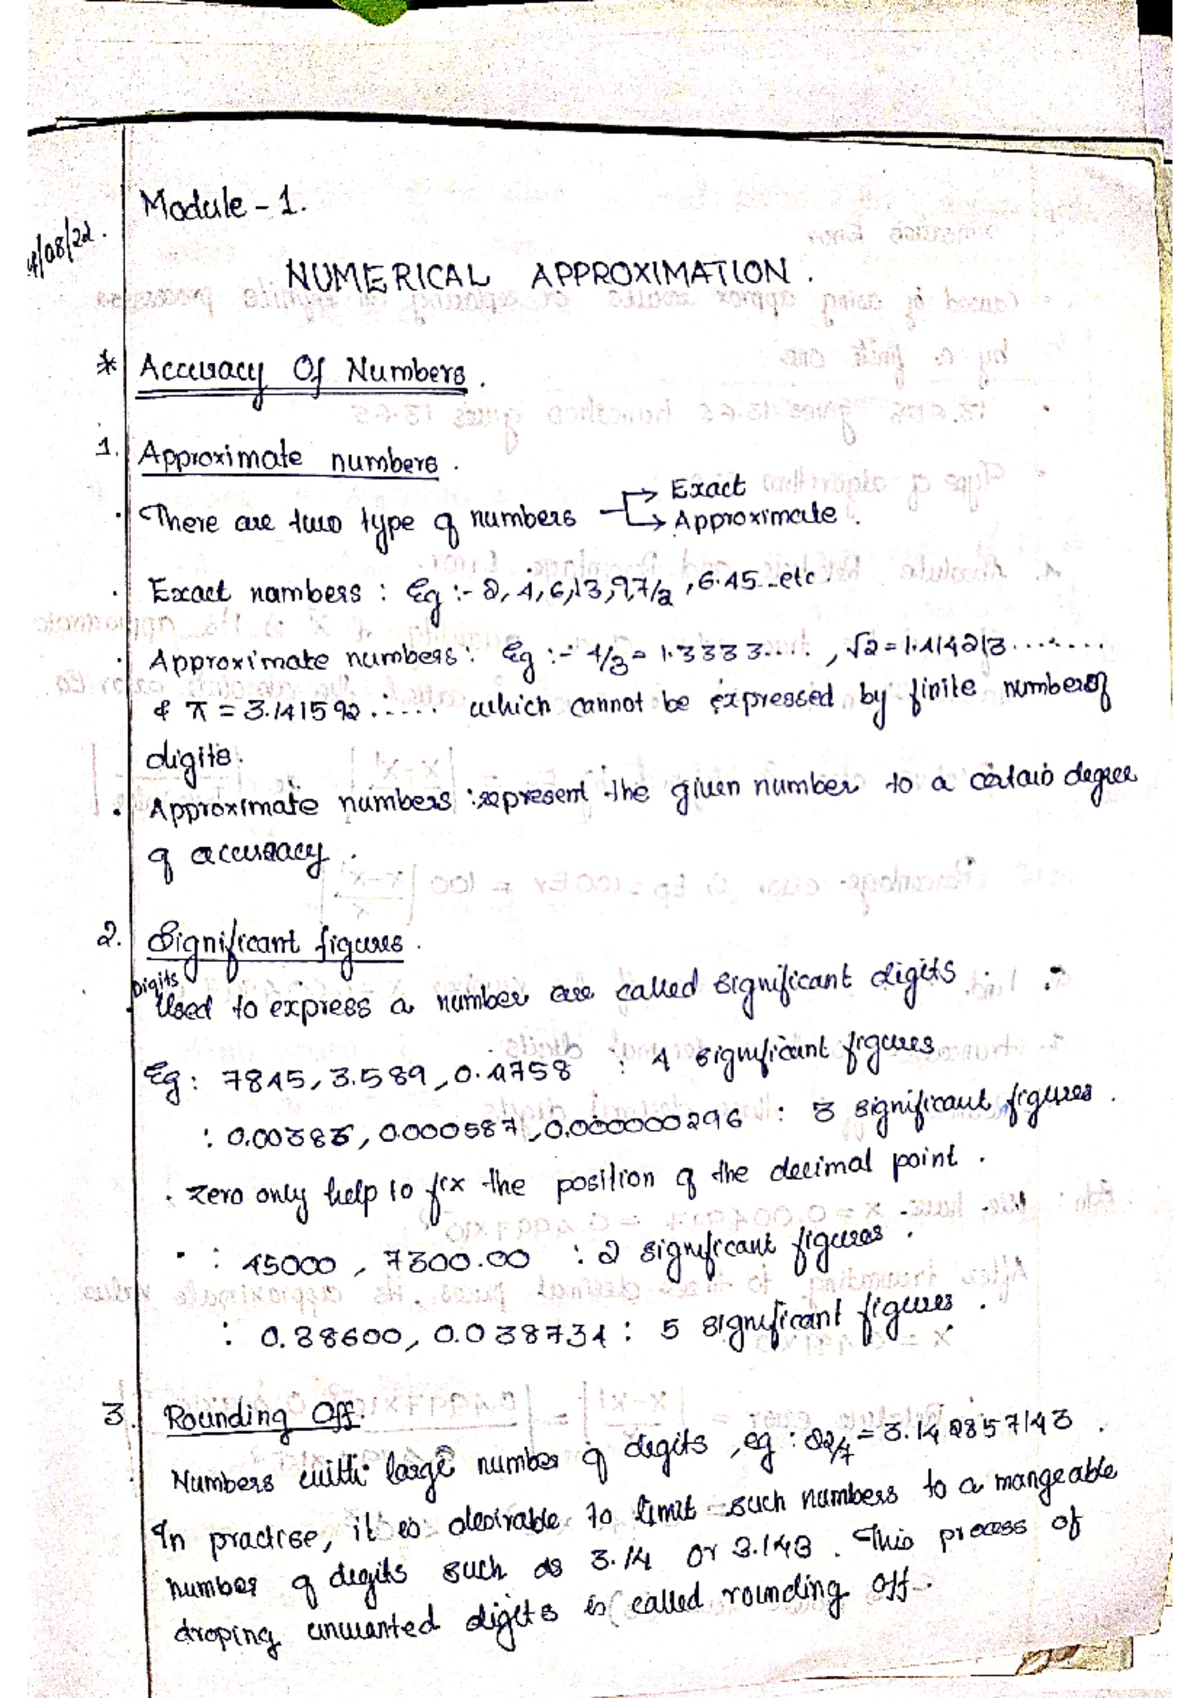 Module - 1.
4/08/22.
NUMERICAL APPROXIMATION.
* Accuracy Of Numbers.
1. Approximate numbers.
· There are two type of numbers → Exact
→ Approximate.
· Exact nambers : Eg :- 2, 4, 6, 13, 9, 7/2, 6.45 ..etc.
· Approximate numbers: Eg :- 4/3 = 1.3333....., √2 = 1.414213.......
& π = 3.141592...... which cannot be expressed by finite number of
digits.
· Approximate numbers : represent the given number to a certain degree
of accuracy.
2. Significant figures.
Digits
· Used to express a number are called significant digits.
Eg : 7845, 3.589, 0.4758 : 4 significant figures
: 0.00386, 0.000587, 0.000000296 : 3 significant figures.
· zero only help to fix the position of the decimal point.
· : 45000, 7300.00 : 2 significant figures.
: 0.38600, 0.038734 : 5 significant figures.
3. Rounding Off.
Numbers with large number of digits, eg : 22/7 = 3.142857143.
In practise, it is desirable to limit such numbers to a mangeable
number of digits such as 3.14 or 3.143. This process of
droping unwanted digits is called rounding off.